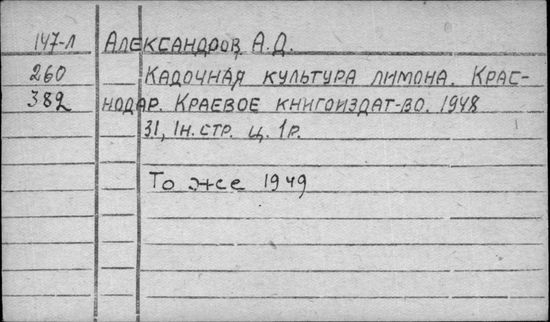 147-Л Александров А.Д.
260 Кадочная культура лимона. Крас-
382 нодар. Краевое книгоиздат-во. 1948
31, 1н. стр. ц. 1р.
То же 1949